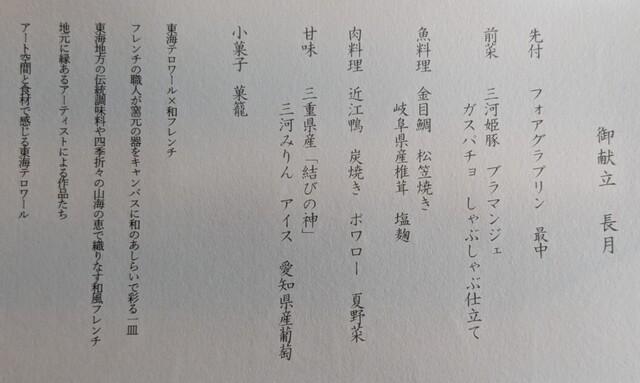 御献立　長月
先付　フォアグラプリン　最中
前菜　三河姫豚　ブラマンジェ
ガスパチョ　しゃぶしゃぶ仕立て
魚料理　金目鯛　松笠焼き
岐阜県産椎茸　塩麹
肉料理　近江鴨　炭焼き　ポワロー　夏野菜
甘味　三重県産「結びの神」
三河みりん　アイス　愛知県産葡萄
小菓子　菓籠
東海テロワール×和フレンチ
フレンチの職人が窯元の器をキャンバスに和のあしらいで彩る一皿
東海地方の伝統調味料や四季折々の山海の恵で織りなす和風フレンチ
地元に縁あるアーティストによる作品たち
アート空間と食材で感じる東海テロワール